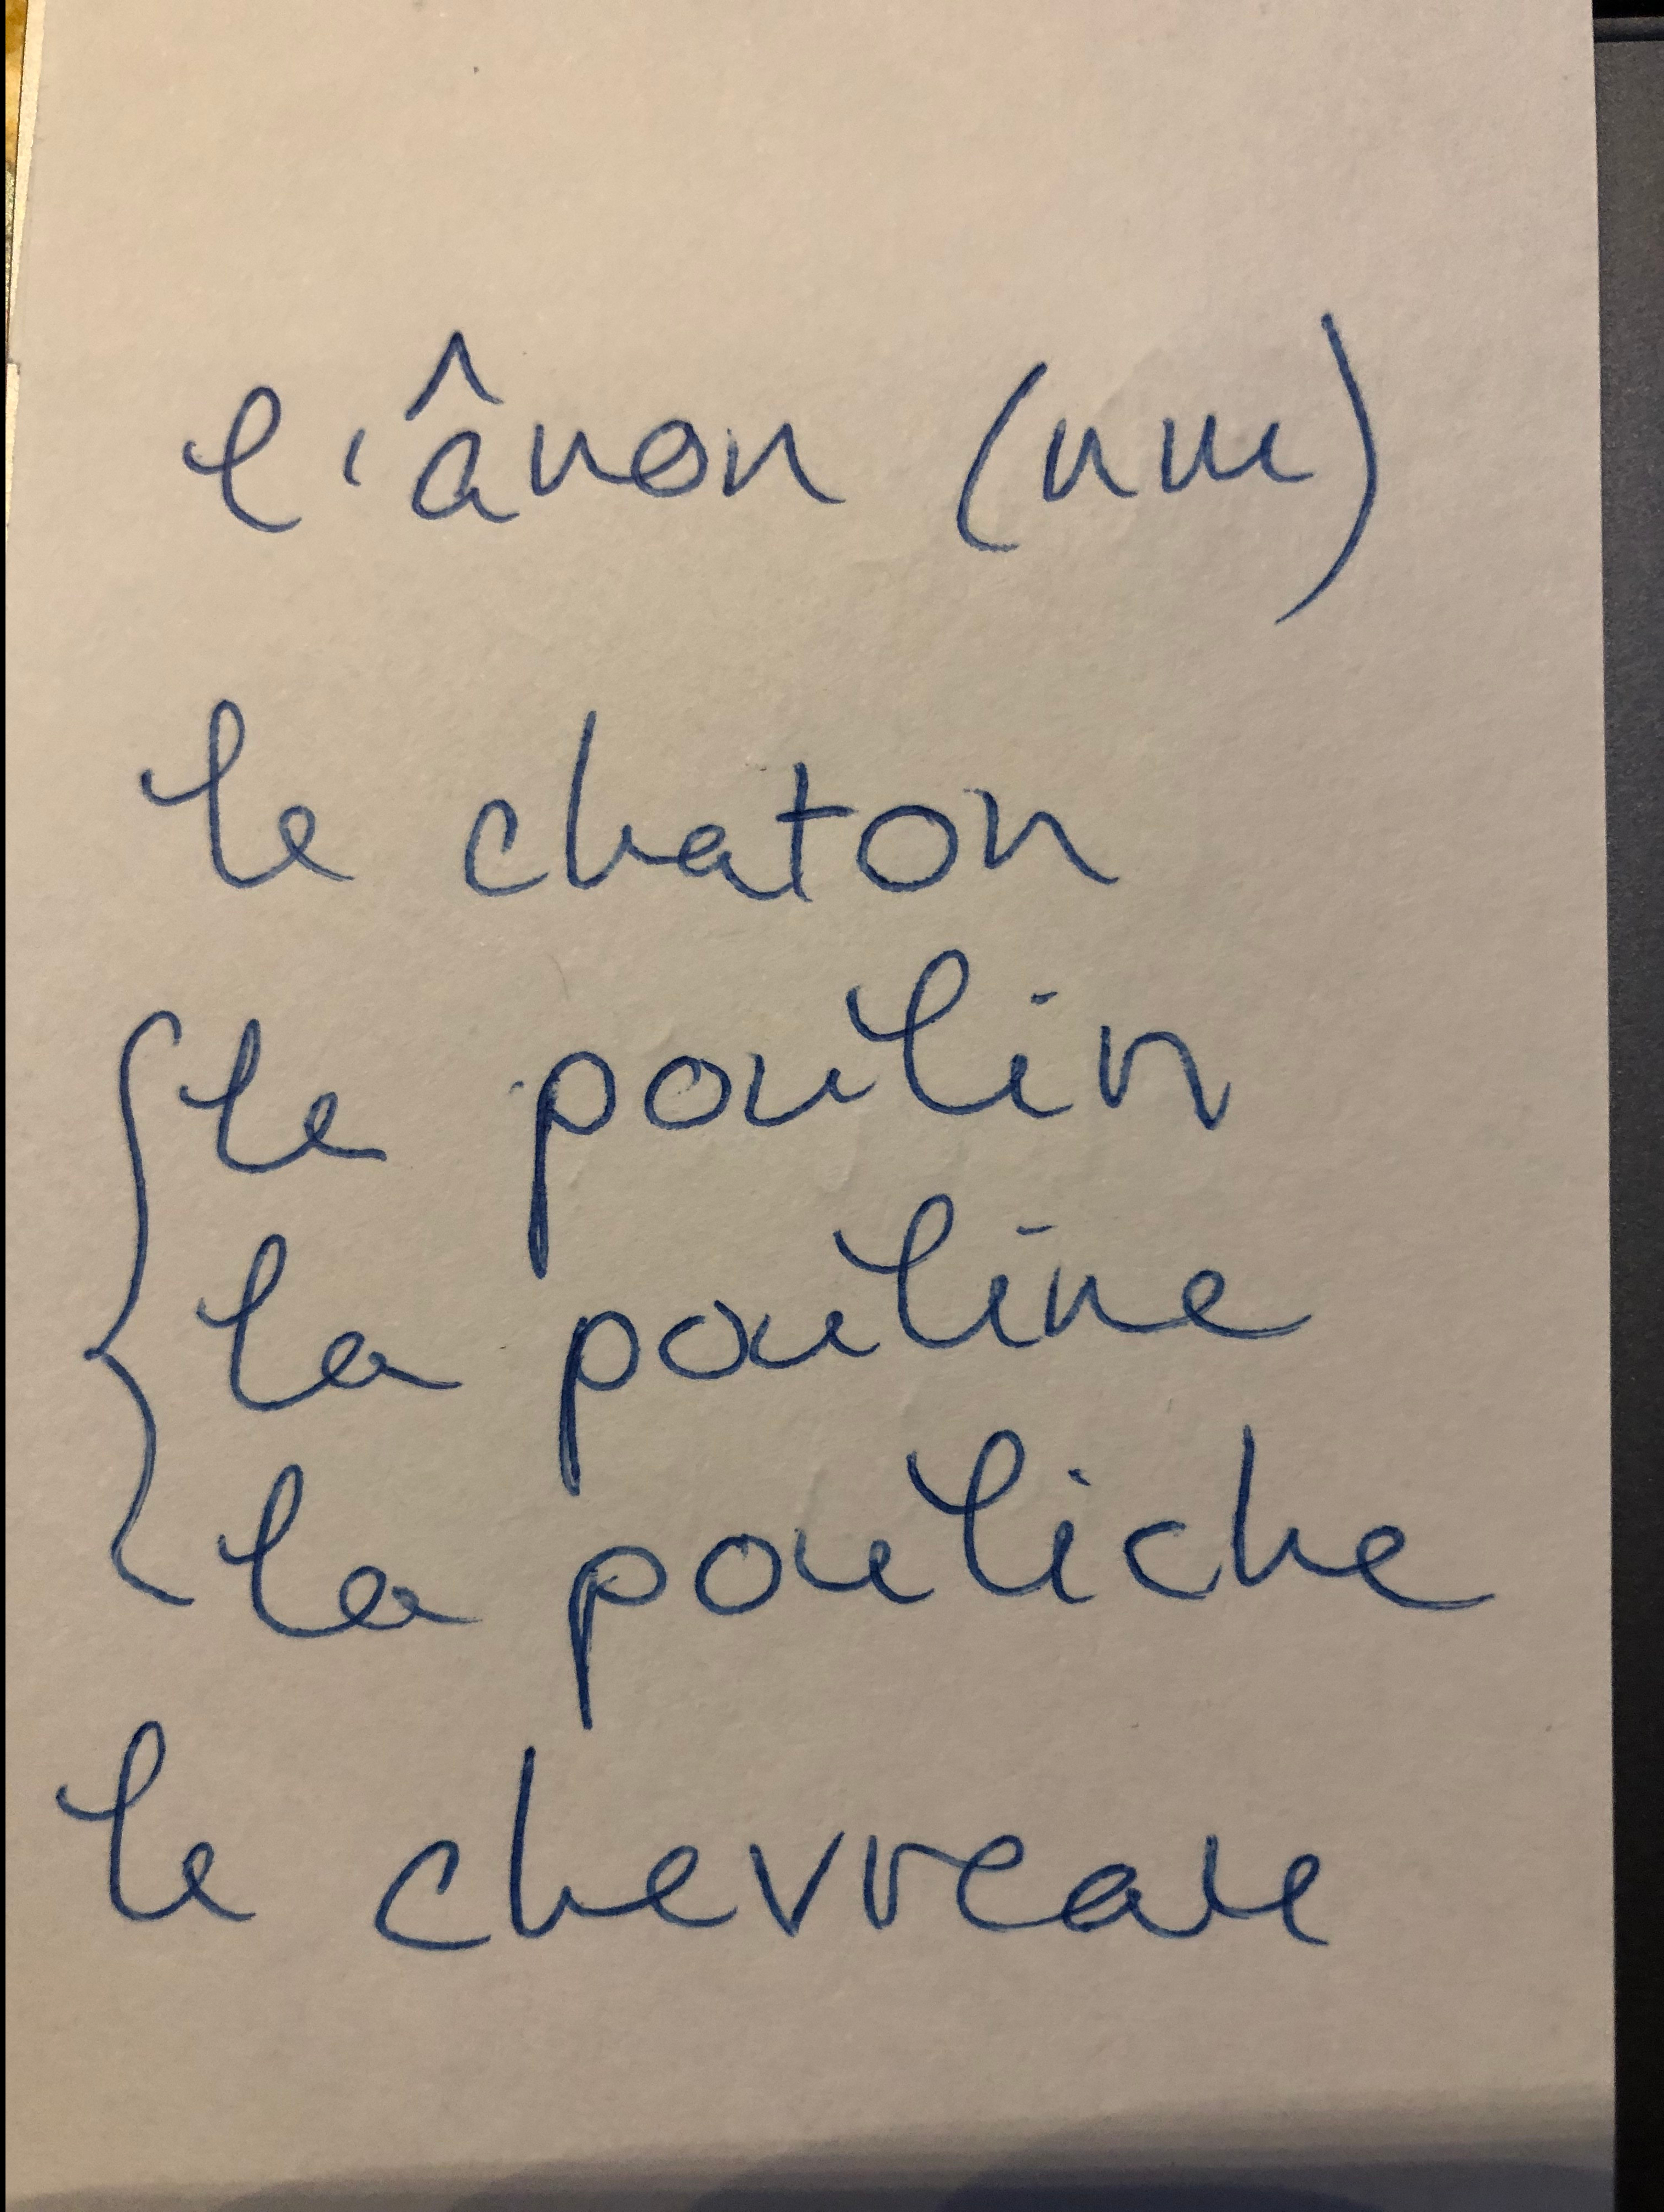 l'ânon (nm)
le chaton
le poulin
la pouline
la pouliche
le chevreau